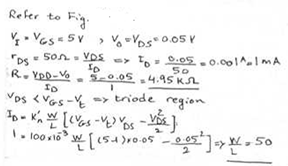 Refer to Fig.
V_I = V_GS = 5V , V_o = V_DS = 0.05V
r_DS = 50Ω = V_DS/I_D => I_D = 0.05/50 = 0.001A = 1mA
R = (V_DD - V_o)/I_D = (5 - 0.05)/1 = 4.95 KΩ
V_DS < V_GS - V_t => triode region
I_D = K'_n W/L [(V_GS - V_t) V_DS - V_DS²/2]
1 = 100×10⁻³ W/L [(5-1)×0.05 - 0.05²/2] => W/L = 50